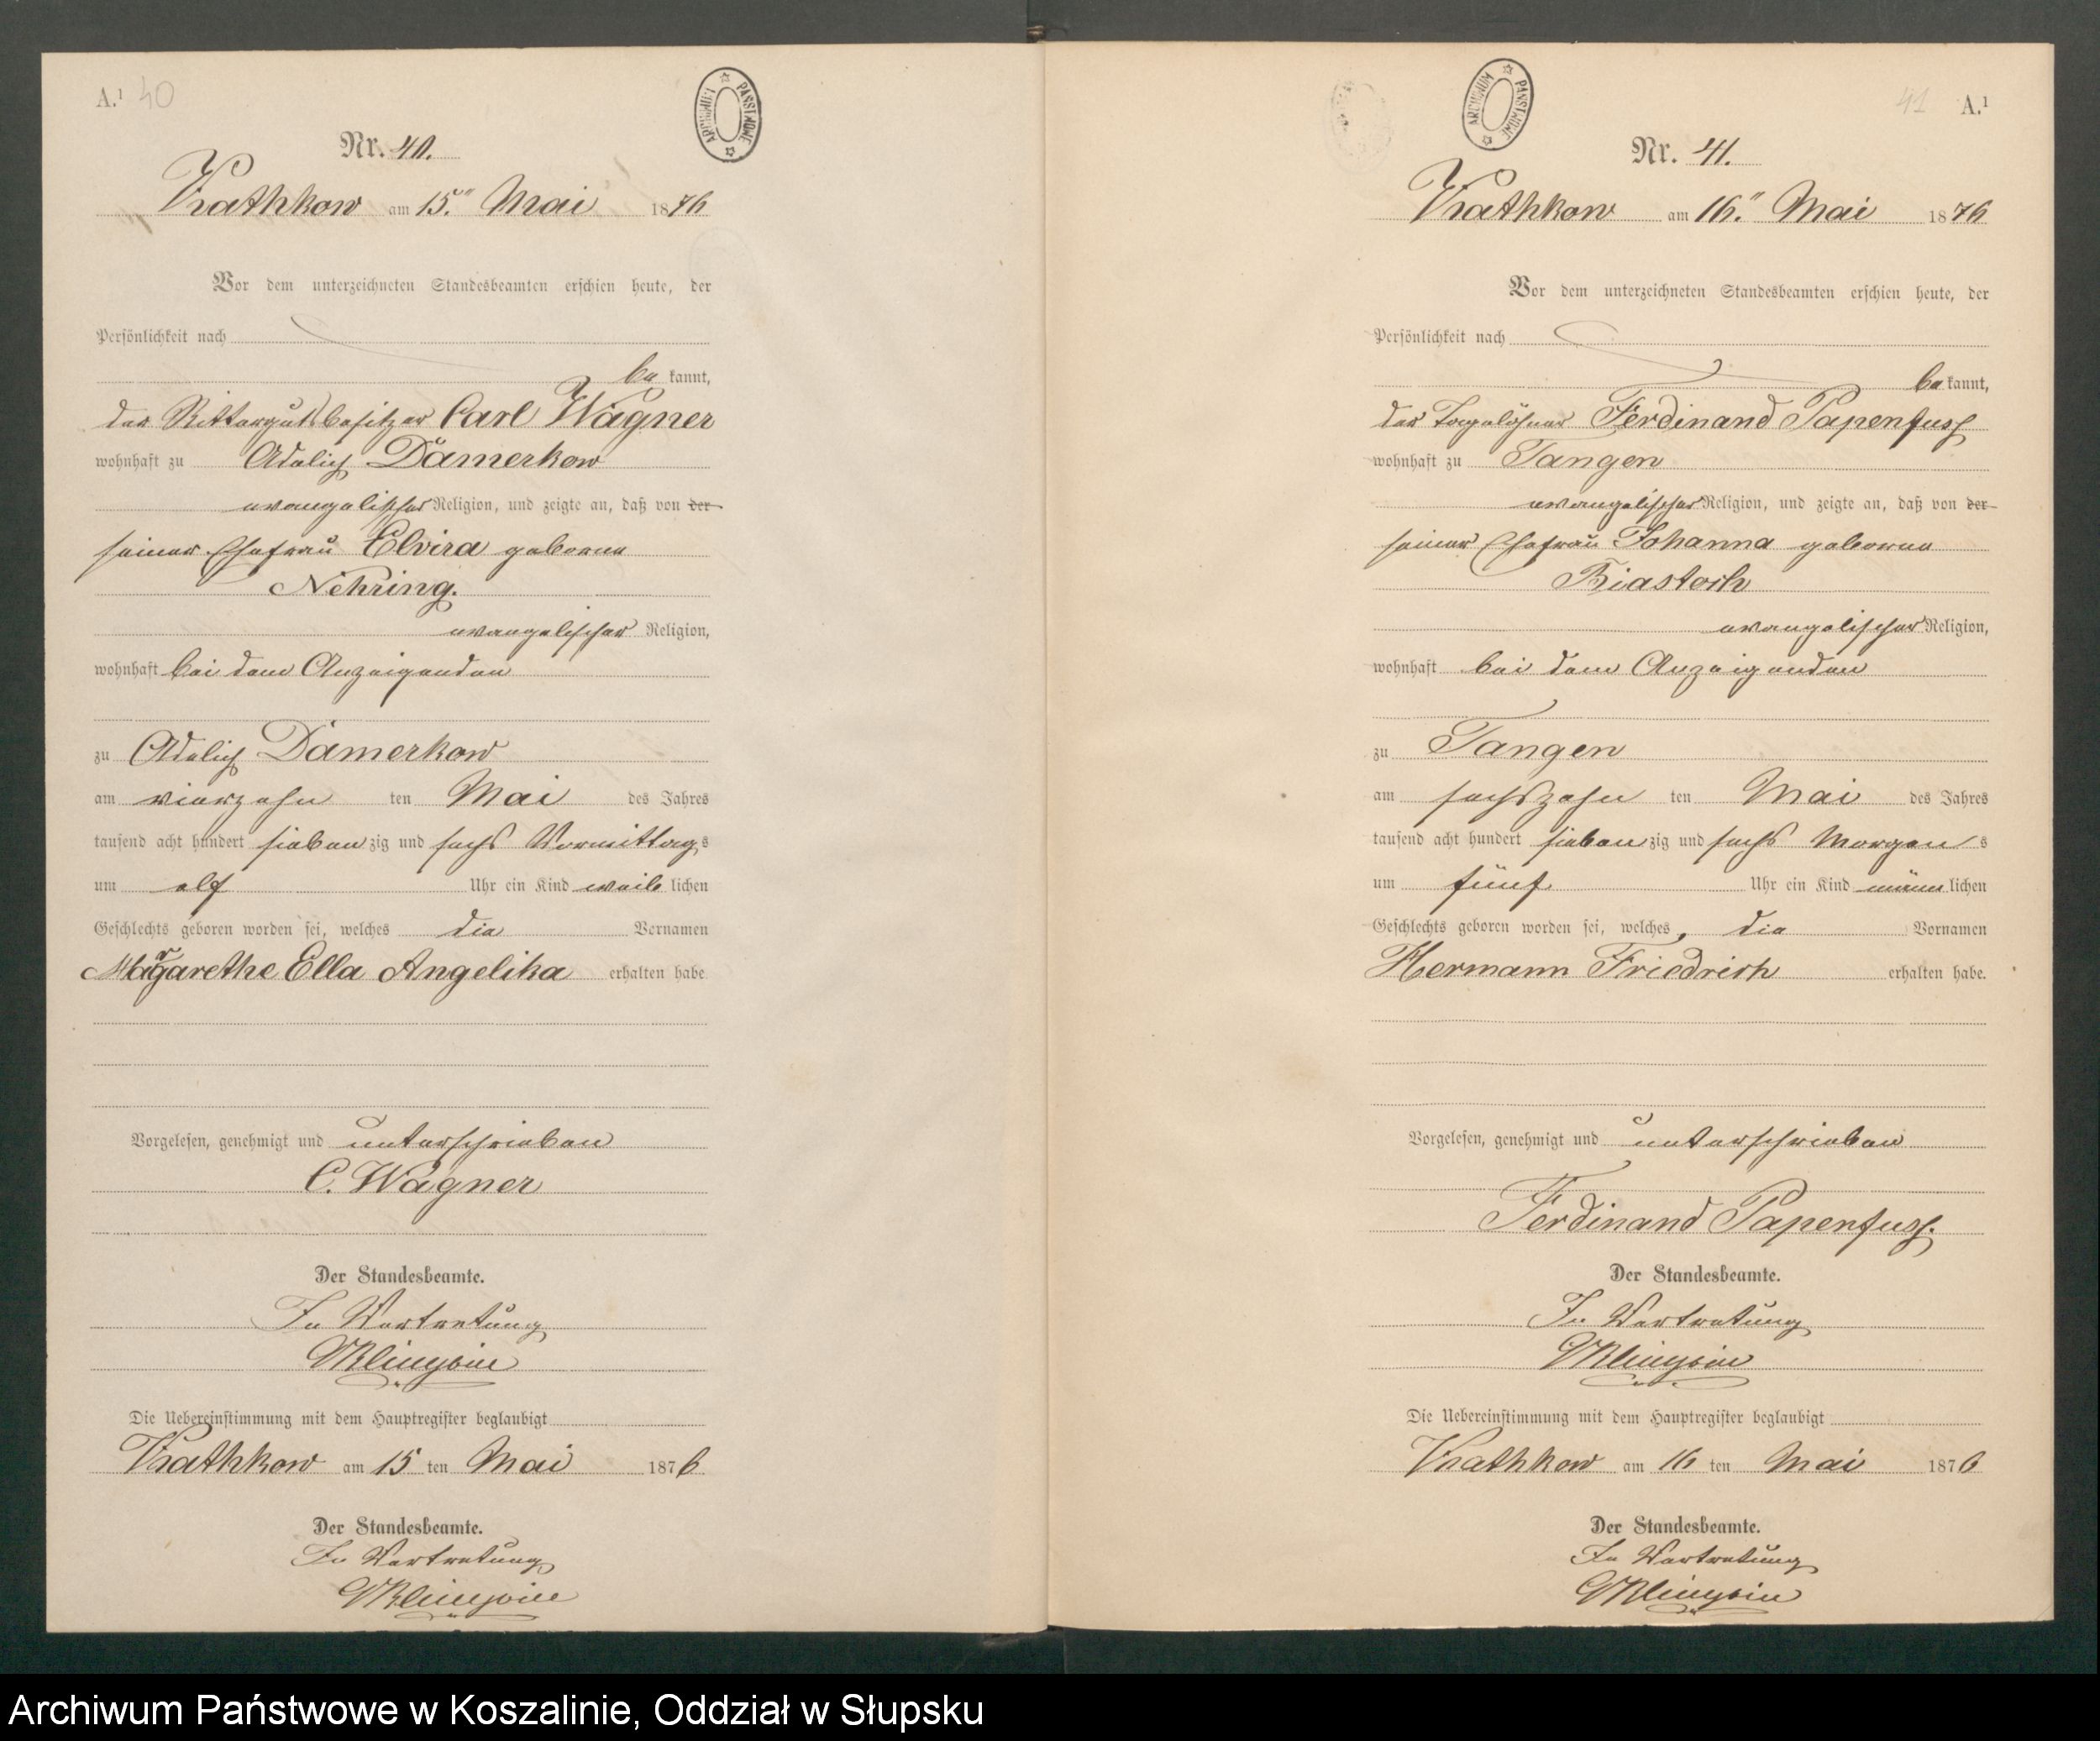 A.¹ 40
ARCHIWUM PAŃSTWOWE
Nr. 40.
Wrathkow am 15." Mai 1876
Vor dem unterzeichneten Standesbeamten erschien heute, der
Persönlichkeit nach
be kannt,
der Rittergutsbesitzer Carl Wagner
wohnhaft zu Adelich Damerkow
evangelischer Religion, und zeigte an, daß von der
seiner Ehefrau Elvira geborene
Nehring.
evangelischer Religion,
wohnhaft bei dem Anzeigenden
zu Adelich Damerkow
am vierzehn ten Mai des Jahres
tausend acht hundert sieben zig und sechs Vormittag s
um elf Uhr ein Kind weib lichen
Geschlechts geboren worden sei, welches die Vornamen
Margarethe Ella Angelika erhalten habe
Vorgelesen, genehmigt und unterschrieben
C. Wagner
Der Standesbeamte.
In Vertretung
Die Uebereinstimmung mit dem Hauptregister beglaubigt
Wrathkow am 15 ten Mai 1876
Der Standesbeamte.
In Vertretung
41 A.¹
ARCHIWUM PAŃSTWOWE
Nr. 41.
Wrathkow am 16." Mai 1876
Vor dem unterzeichneten Standesbeamten erschien heute, der
Persönlichkeit nach
be kannt,
der Tagelöhner Ferdinand Papenfuss
wohnhaft zu Tangen
evangelischer Religion, und zeigte an, daß von der
seiner Ehefrau Johanna geborene
Biastoch
evangelischer Religion,
wohnhaft bei dem Anzeigenden
zu Tangen
am sechszehn ten Mai des Jahres
tausend acht hundert sieben zig und sechs Morgen s
um fünf Uhr ein Kind männ lichen
Geschlechts geboren worden sei, welches die Vornamen
Hermann Friedrich erhalten habe.
Vorgelesen, genehmigt und unterschrieben
Ferdinand Papenfuss.
Der Standesbeamte.
In Vertretung
Die Uebereinstimmung mit dem Hauptregister beglaubigt
Wrathkow am 16 ten Mai 1876
Der Standesbeamte.
In Vertretung
Archiwum Państwowe w Koszalinie, Oddział w Słupsku